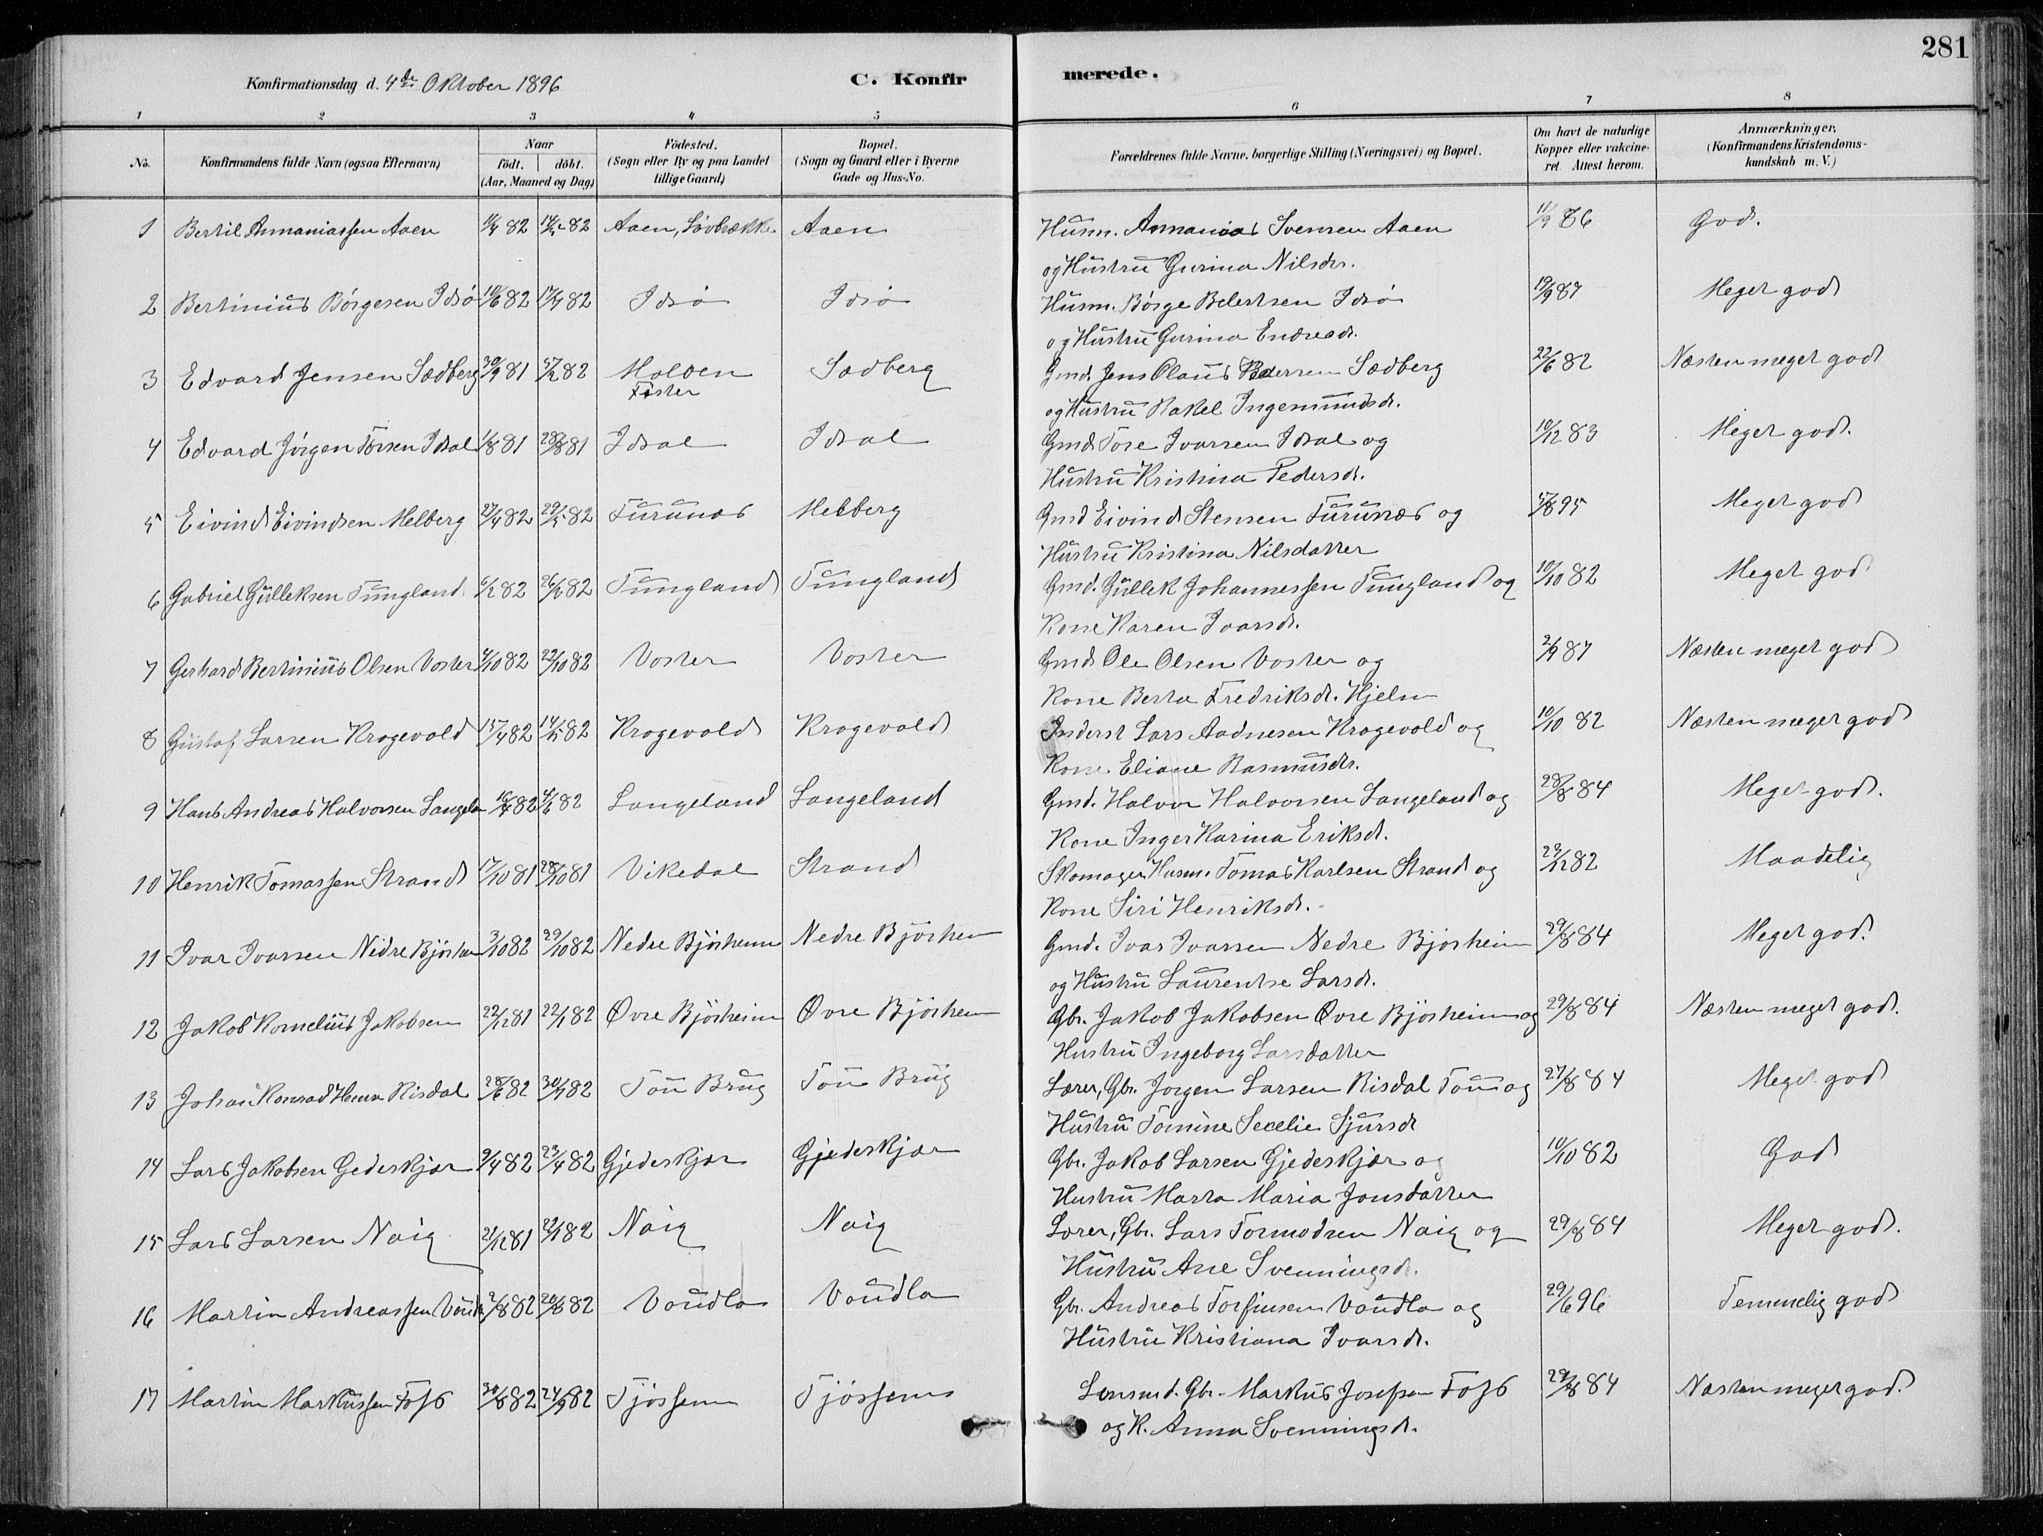 281
Konfirmationsdag d. 4de Oktober 1896 C. Konfirmerede.
1 2 3 4 5 6 7 8
No. Konfirmandens fulde Navn (ogsaa Efternavn) Naar født. døbt. (Aar, Maaned og Dag) Födested. (Sogn eller By og paa Landet tillige Gaard) Bopæl. (Sogn og Gaard eller i Byerne Gade og Hus-No. Forældrenes fulde Navne, borgerlige Stilling (Næringsvei) og Bopæl. Om havt de naturlige Kopper eller vakcineret Attest herom. Anmærkninger, (Konfirmandens Kristendomskundskab m. V.)
1 Bertil Annaniassen Aaen 82 82 Aaen, Aaen Husm. Annanias Svensen Aaen 11/9 86 God.
og Hustru Gurina Nilsdr.
2 Bertinius Börgesen Idsö 10/6 82 17/7 82 Idsø Idsø Husm. Börge Idsø 19/9 87 Meget god
og Hustru Gurina Endresdr.
3 Edvard Jensen Sædberg 30/9 81 5/2 82 Holven Fister Sædberg Gmd. Jens Olaus Pedersen Sædberg 22/6 82 Næsten meget god
og Hustru Rakel Ingemundsdr.
4 Edvard Jørgen Torsen Idsal 1/8 81 28/8 81 Idsal Idsal Gmd. Tore Ivarsen Idsal og 10/12 83 Meget god.
Hustru Kristina Pedersdr.
5 Eivind Eivindsen Melberg 27/4 82 29/5 82 Furunæs Melberg Gmd Eivind Stensen Furunæs og 5/8 95 Meget god
Hustru Kristina Nilsdatter
6 Gabriel Gulleksen Tungland 6/2 82 26/2 82 Tungland Tungland Gmd. Gullek Johannessen Tungland og 10/10 82 Meget god
Kone Karen Ivarsdr.
7 Gerhard Bertinius Olsen Voster 4/10 82 22/10 82 Voster Voster Gmd Ole Olsen Voster og 2/9 87 Næsten meget god
Kone Berta Fredriksdr. Hjelm
8 Gustaf Larsen Krogevold 15/4 82 14/5 82 Krogevold Krogevold Inderst Lars Aadnesen Krogevold og 10/10 82 Næsten meget god
Kone Eliane Rasmusdr.
9 Hans Andreas Halvorsen Langelan 16/4 82 4/6 82 Langeland Langeland Gmd. Halvor Halvorsen Langeland og 28/8 84 Meget god.
Kone Inger Karina Eriksdr.
10 Henrik Tomassen Strand 17/10 81 28/10 81 Vikedal Strand Skomager Husm. Tomas Karlsen Strand og 29/12 82 Maadelig
Kone Siri Henriksdr.
11 Ivar Ivarsen Nedre Björheim 3/10 82 29/10 82 Nedre Björheim Nedre Björheim Gmd. Ivar Ivarsen Nedre Bjorheim 29/8 84 Meget god.
og Hustru Laurentse Larsdr.
12 Jakob Kornelius Jakobsen 22/12 81 22/1 82 Øvre Björheim Øvre Björheim Gbr. Jakob Jakobsen Øvre Björheim og 29/8 84 Næsten meget god.
Hustru Ingeborg Larsdatter
13 Johan Konrad Risdal 28/6 82 30/7 82 Tou Brug Tou Brug Lærer, Gbr. Jørgen Larsen Risdal Tou og 27/8 84 Meget god
Hustru Tomine Secelie Sjursdr
14 Lars Jakobsen Gedeskjær 9/4 82 23/4 82 Gjedeskjær Gjedeskjær Gbr. Jakob Larsen Gjedeskjær og 10/10 82 God
Hustru Marta Maria Jonsdatter
15 Lars Larsen Naig 21/12 81 22/1 82 Naig Naig Lærer, Gbr. Lars Tormodsen Naig og 29/8 84 Meget god.
Hustru Ane Svenningsdr.
16 Martin Andreassen Voudla 2/8 82 20/8 82 Voudla Voudla Gbr. Andreas Torfinsen Voudla og 29/6 96 Temmelig god
Hustru Kristiana Ivarsdr.
17 Martin Markussen Foss 30/8 82 24/9 82 Tjössem Tjössem Lensmd. Gbr. Markus Josefsen Foss 29/8 84 Næsten meget god.
og K. Anna Svenningsdr.